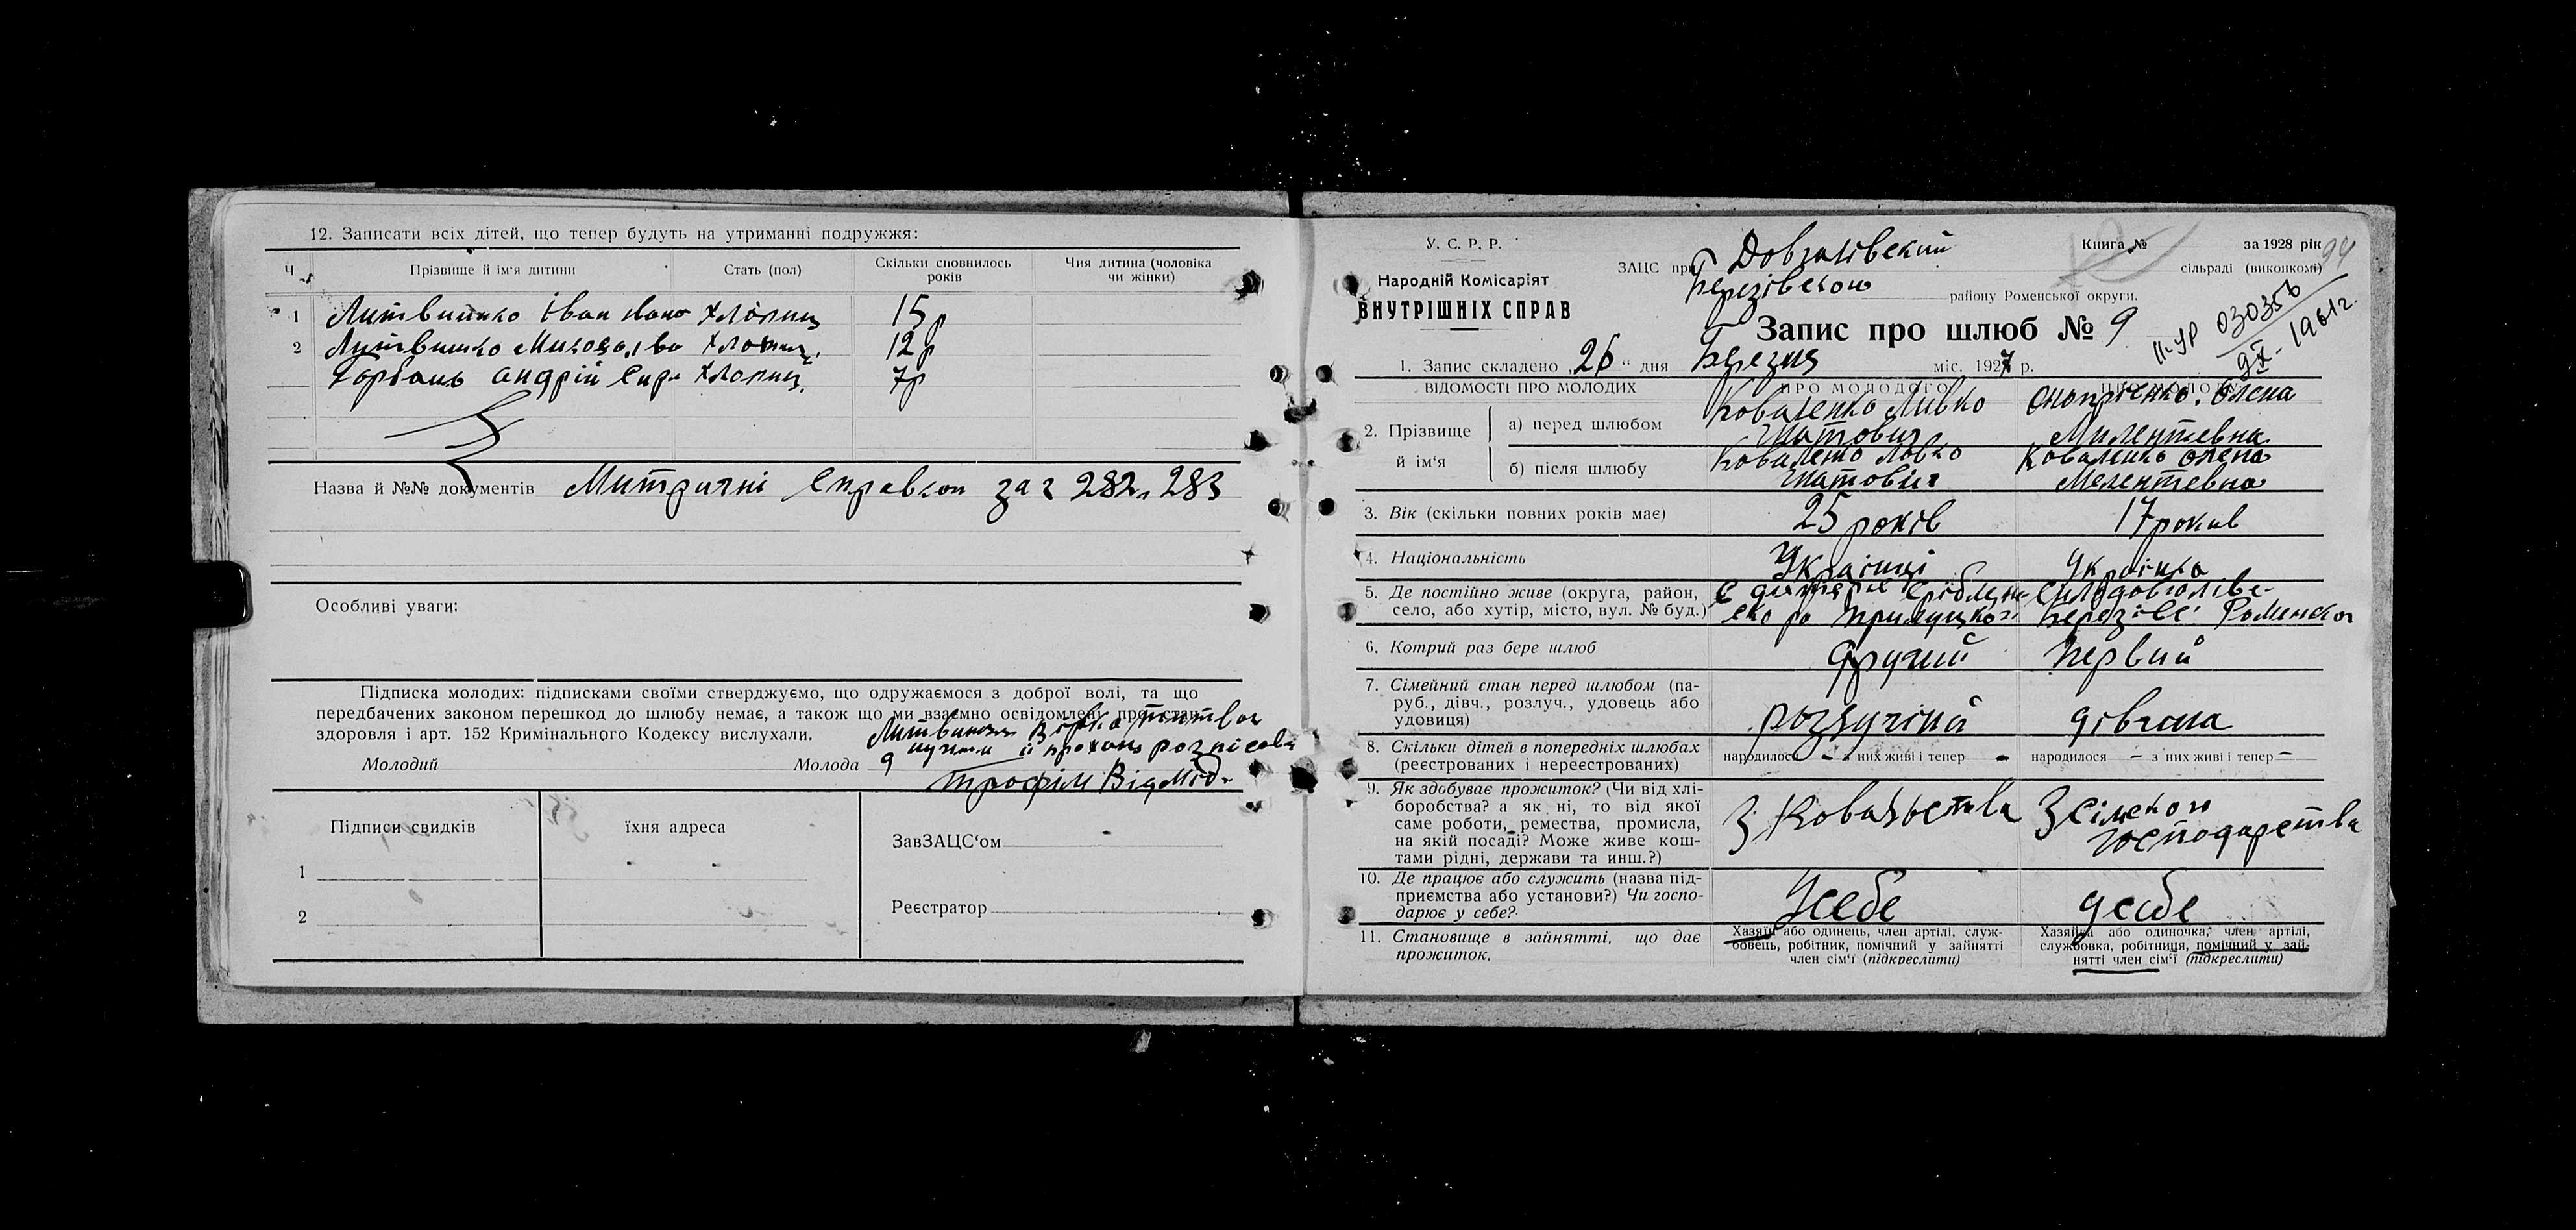 12. Записати всіх дітей, що тепер будуть на утриманні подружжя:
Ч. Прізвище й ім'я дитини Стать (пол) Скільки сповнилось років Чия дитина (чоловіка чи жінки)
1 Литвиненко Іван Хлопиц 15р
2 Хлопиц. 12р
Горбань Андрій Хлопиц. 7р
Назва й №№ документів Митричні Справкои за 282, 283
Особливі уваги:
Підписка молодих: підписками своїми стверджуємо, що одружаємося з доброї волі, та що
передбачених законом перешкод до шлюбу немає, а також що ми взаємно освідомлені про стан
здоровля і арт. 152 Кримінального Кодексу вислухали.
Молодий Молода
Трофім
Підписи свидків їхня адреса
ЗавЗАЦС'ом
1
Реєстратор
2
У. С. Р. Р.
Народній Комісаріят
ВНУТРІШНІХ СПРАВ
Книга № за 1928 рік 94
ЗАЦС при сільраді (виконкомі)
Березівською району Роменської округи.
Запис про шлюб № 9
II-УР 030356
9X-1961г.
1. Запис складено „26“ дня Березня міс. 1927 р.
ВІДОМОСТІ ПРО МОЛОДИХ ПРО МОЛОДОГО ПРО МОЛОДУ
2. Прізвище й ім'я
а) перед шлюбом Коваленко Оноприенко Олена
Милентевна
б) після шлюбу Коваленко Олена
Мелентевна
3. Вік (скільки повних років має) 25 років 17 рокив
4. Національність Украінці Украінка
5. Де постійно живе (округа, район,
село, або хутір, місто, вул. № буд.)
Роменскои
6. Котрий раз бере шлюб другий первий
7. Сімейний стан перед шлюбом (па-
руб., дівч., розлуч., удовець або
удовиця)
дівчина
8. Скільки дітей в попередніх шлюбах
(реєстрованих і нереєстрованих)
народилося – з них живі і тепер – народилося – з них живі і тепер –
9. Як здобуває прожиток? (Чи від хлі-
боробства? а як ні, то від якої
саме роботи, ремества, промисла,
на якій посаді? Може живе кош-
тами рідні, держави та инш.?)
З Ковальства З сілского
господарства
10. Де працює або служить (назва під-
приємства або установи?) Чи госпо-
дарює у себе?
Усебе усебе
11. Становище в зайнятті, що дає
прожиток.
Хазяїн або одинець, член артілі, служ-
бовець, робітник, помічний у зайнятті
член сім'ї (підкреслити)
Хазяйка або одиночка, член артілі,
службовка, робітниця, помічний у зай-
нятті член сім'ї (підкреслити)